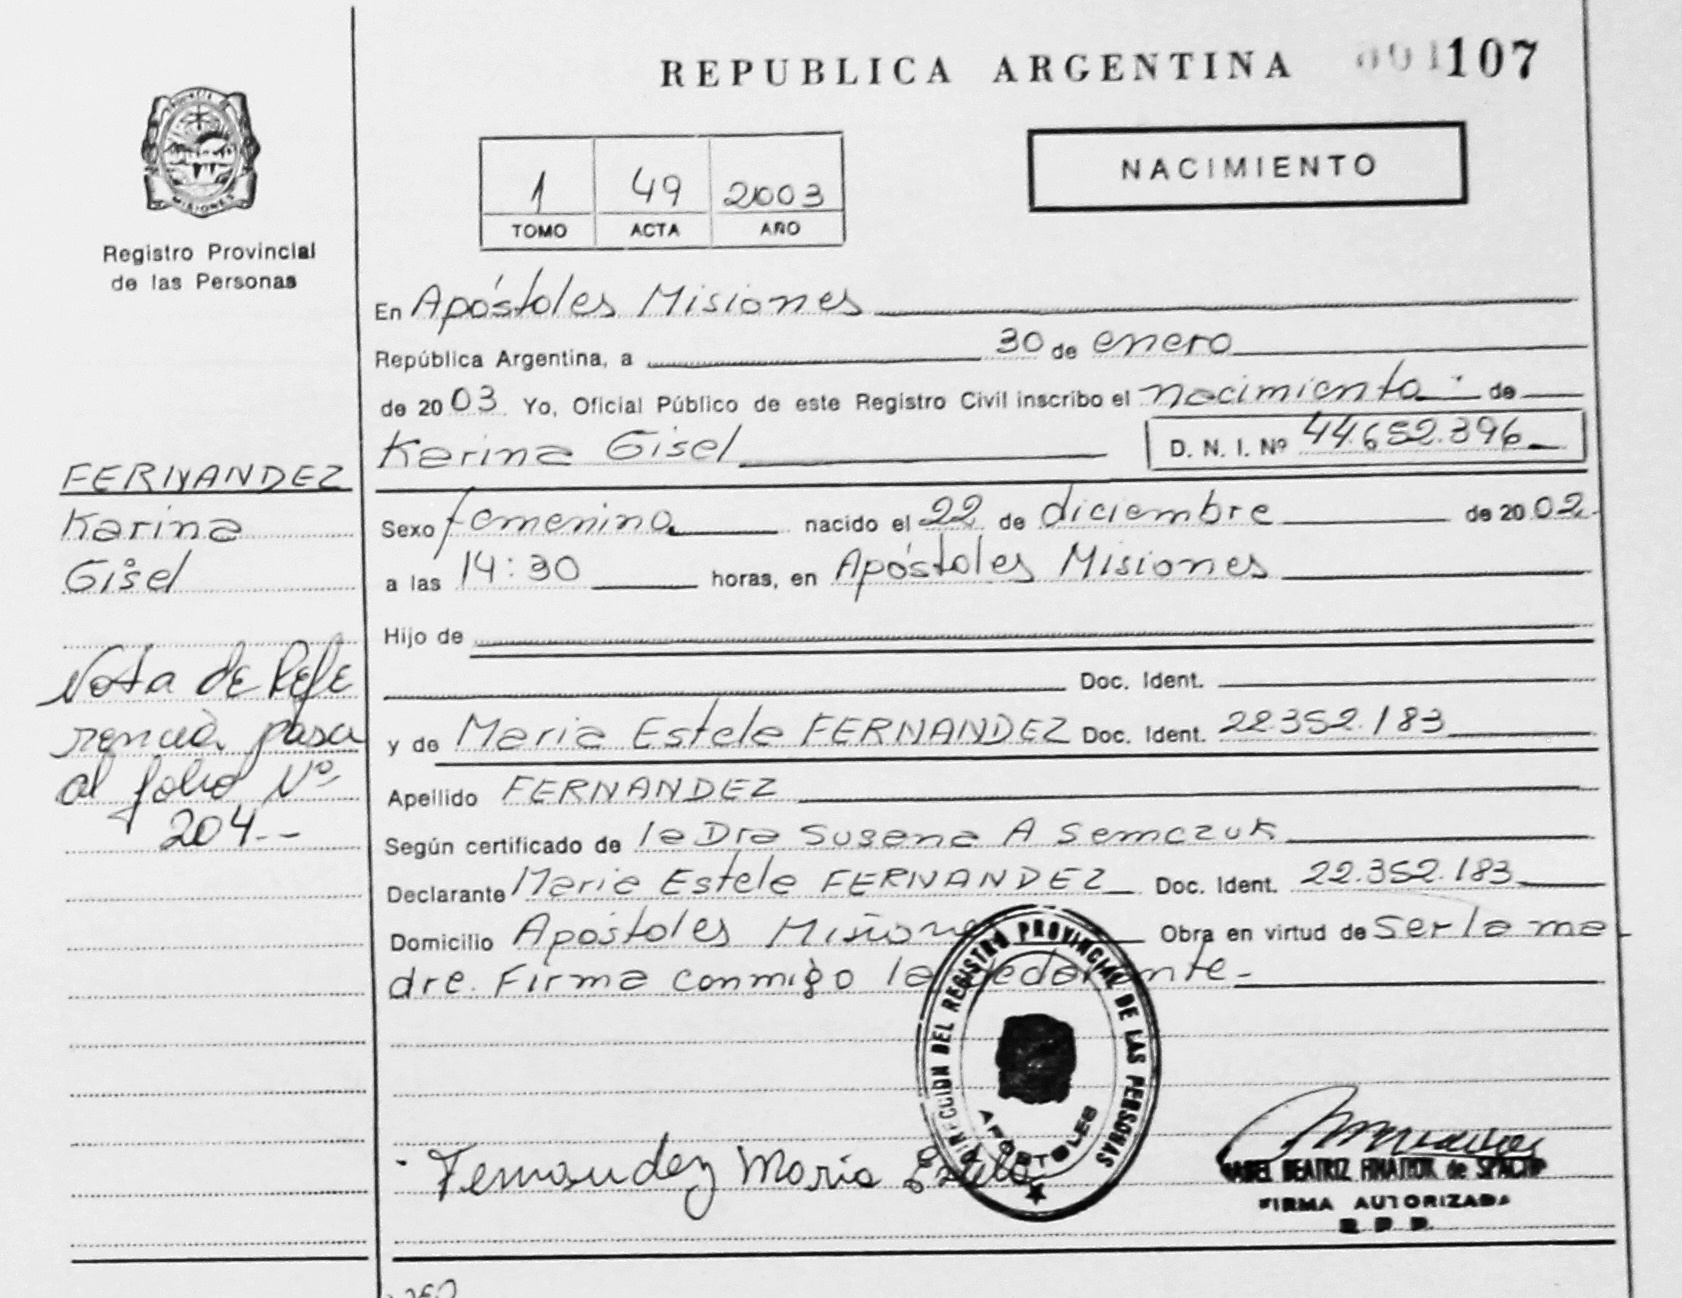 REPUBLICA ARGENTINA 001107
PROVINCIA DE
MISIONES
Registro Provincial
de las Personas
1 49 2003
TOMO ACTA AÑO
NACIMIENTO
En Apóstoles Misiones
República Argentina, a 30 de enero
de 2003 Yo, Oficial Público de este Registro Civil inscribo el nacimiento de
Karina Gisel D. N. I. Nº 44.652.396
Sexo femenino nacido el 22 de diciembre de 2002
a las 14:30 horas, en Apóstoles Misiones
Hijo de
Doc. Ident.
y de Maria Estela FERNANDEZ Doc. Ident. 22.352.183
Apellido FERNANDEZ
Según certificado de la Dra Susana A Semczuk
Declarante Maria Estela FERNANDEZ Doc. Ident. 22.352.183
Domicilio Apóstoles Misiones Obra en virtud de ser la ma
dre. Firma conmigo la declarante
FERNANDEZ
Karina
Gisel
Nota de Refe
rencia pasa
al folio Nº
204--
DIRECCION DEL REGISTRO PROVINCIAL DE LAS PERSONAS
APOSTOLES
Fernandez Maria Estela
BEATRIZ de
FIRMA AUTORIZADA